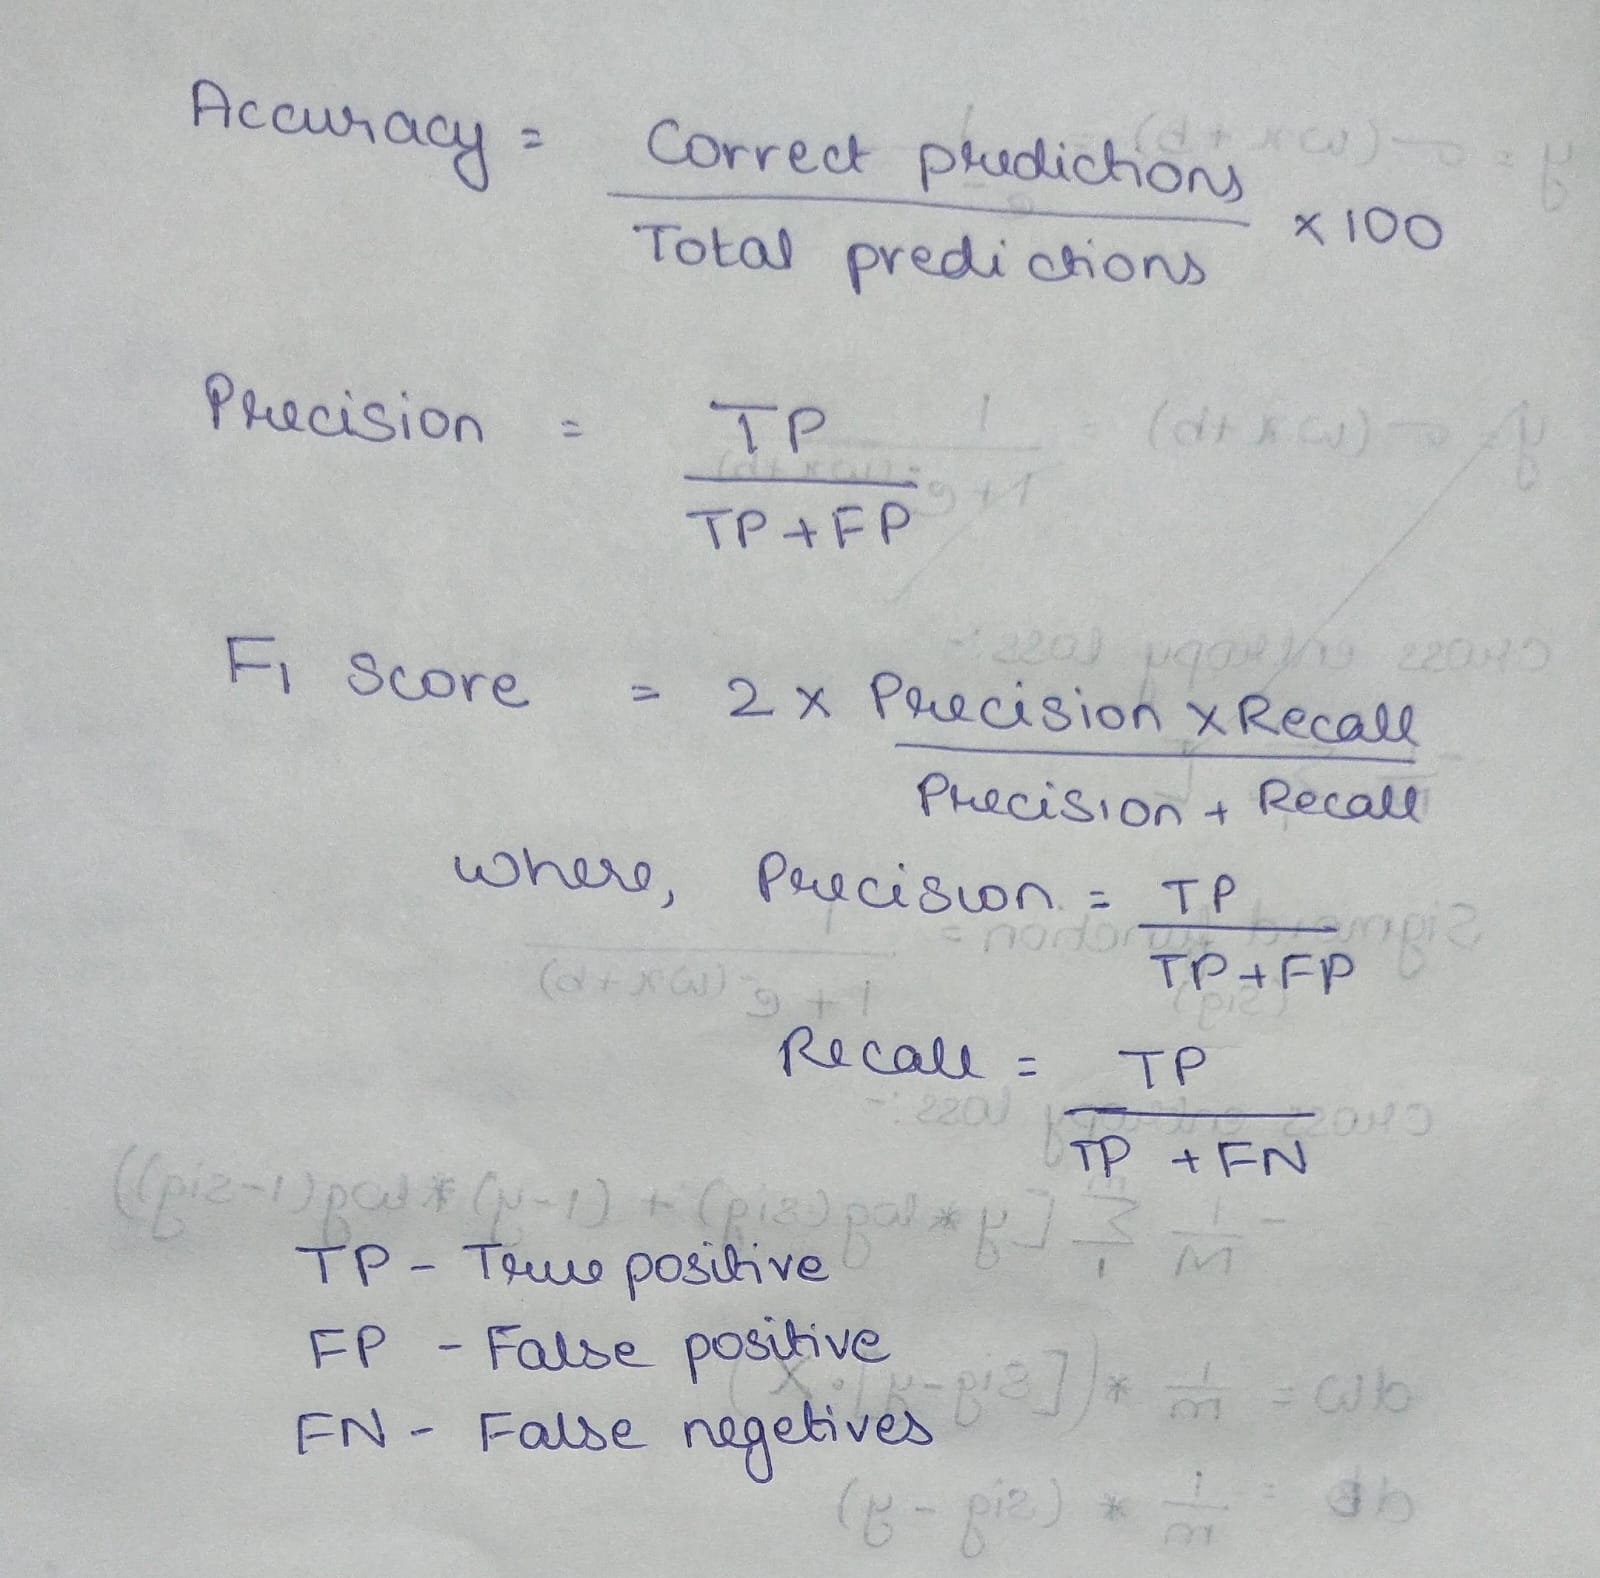 Accuracy = Correct predictions
Total predictions × 100
Precision = TP
TP + FP
F1 Score = 2 × Precision × Recall
Precision + Recall
where, Precision = TP
TP + FP
Recall = TP
TP + FN
TP - True positive
FP - False positive
FN - False negetives